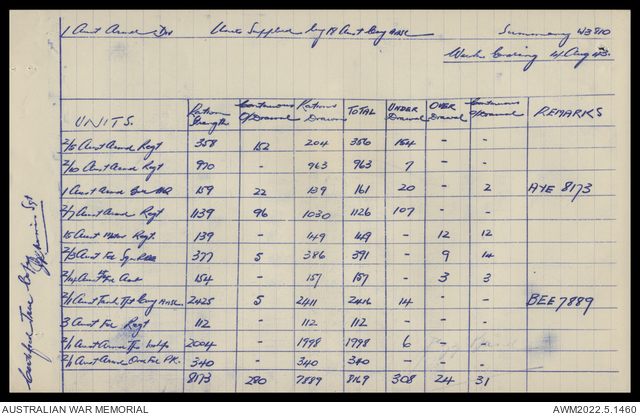 1 Aust Armd Div Units Supplied by 18 Aust Coy AASC Summary W3810
Week Ending 4 Aug 43.
UNITS. Ration Strength Continuous O/Drawal Rations Drawn TOTAL UNDER Drawal OVER Drawal Continuous O/Drawal REMARKS
2/5 Aust Armd Regt 358 152 204 356 154 - -
2/10 Aust Armd Regt 970 - 963 963 7 - -
1 Aust Armd HQ 159 22 139 161 20 - 2 AYE 8173
2/7 Aust Armd Regt 1139 96 1030 1126 107 - -
15 Aust Motor Regt. 139 - 149 149 - 12 12
2/3 Aust Fd Sqn RAE 377 5 386 391 - 9 14
2/14 Aust Fd 154 - 157 157 - 3 3
2/1 Aust Tank Tpt Coy AASC 2425 5 2411 2416 14 - - BEE 7889
3 Aust Fd Regt 112 - 112 112 - - -
2/1 Aust Armd 2004 - 1998 1998 6 - -
2/1 Aust Armd Ord Fd PK. 340 - 340 340 - - -
8173 280 7889 8169 308 24 31
Certified True Copy
Sgt
AUSTRALIAN WAR MEMORIAL AWM2022.5.1460